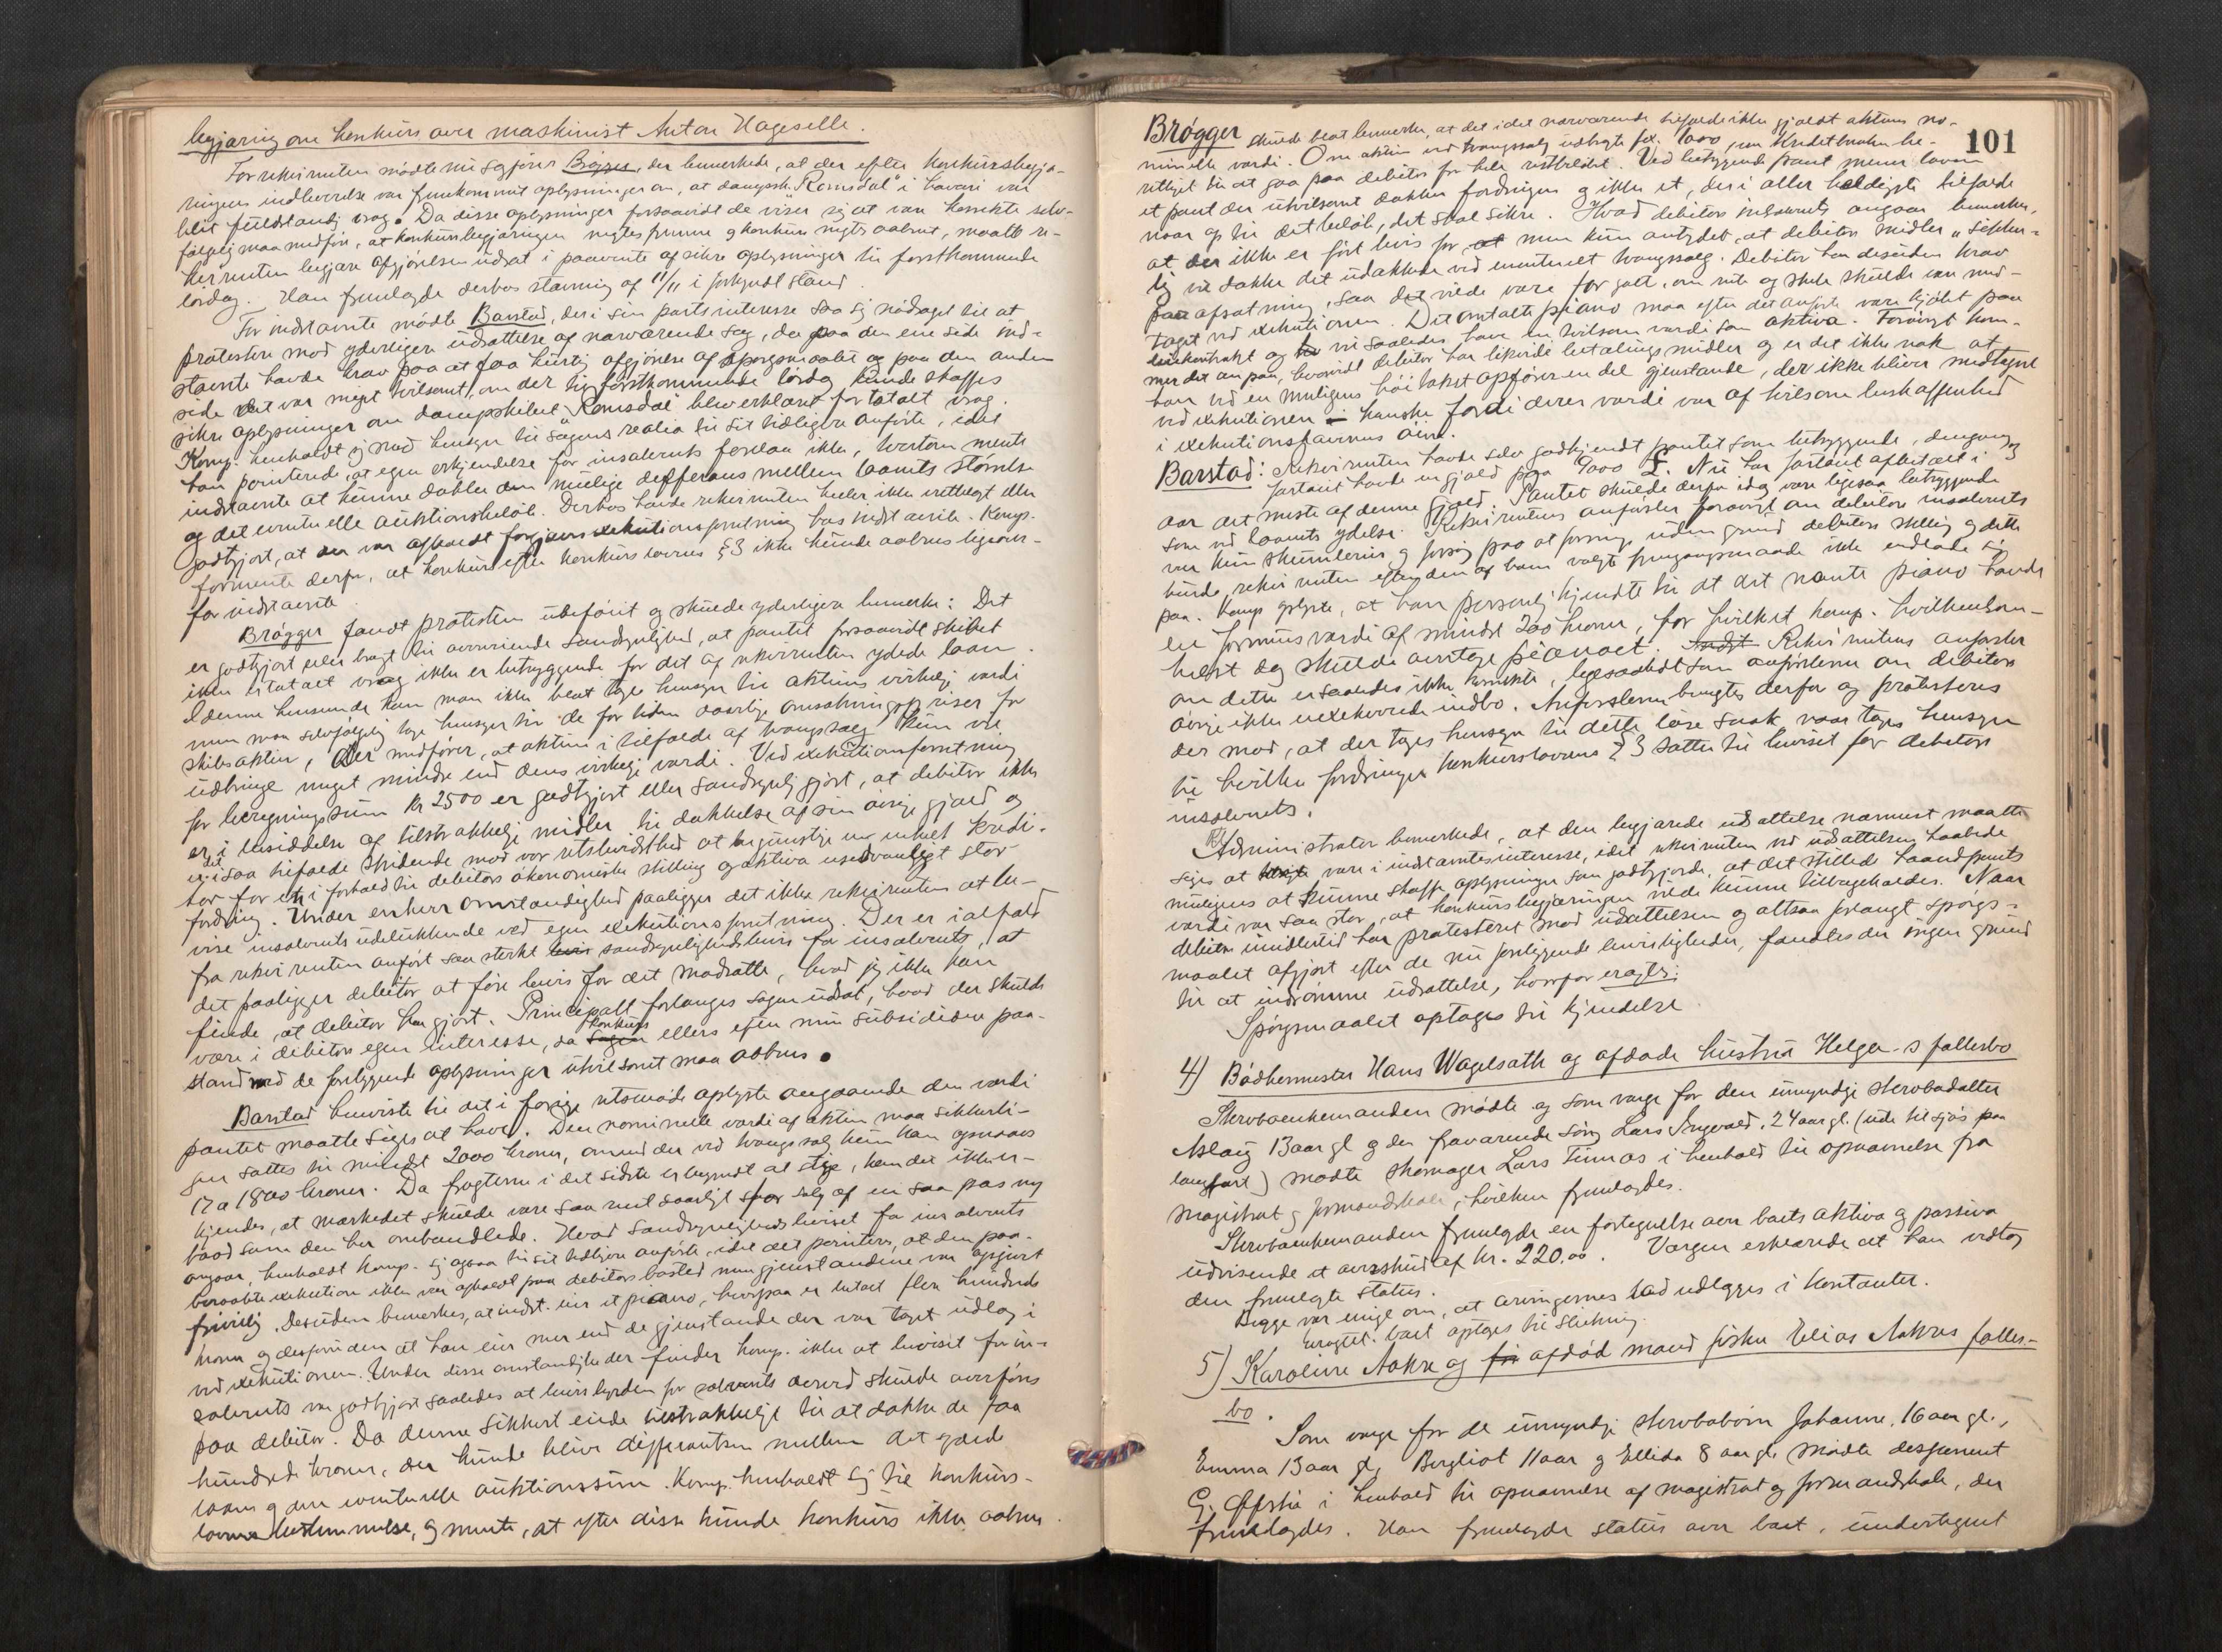 begjæring om konkurs over maskinist Anton Hageselle.
For rekvirenten mødte nu sagfører Brøgger, der bemerkede, at der efter konkursbegjæ-
ringens indleverelse var fremkommet oplysninger om, at dampsk. "Romsdal" i havari var
blit fuldstændig vrag. Da disse oplysninger forsaavidt de viser sig at være korrekte selv-
følgelig maa medføre, at konkursbegjæringen negtes fremme og konkurs negtes aabnet, maatte re-
kvirenten begjære afgjørelsen udsat i paavente af sikre oplysninger til førstkommende
lørdag. Han fremlagde derhos stævning af 11/11 i forkyndt stand.
For indstævnte mødte Barstad, der i sin parts interesse saa sig nødsaget til at
protestere mod yderligere udsættelse af nærværende sag, da paa den ene side ind-
stævnte havde krav paa at faa hurtig afgjørelse af spørgsmaalet og paa den anden
side det var meget tvilsomt, om der til førstkommende lørdag kunde skaffes
sikre oplysninger om dampskibet "Romsdal" blev erklæret for totalt vrag.
Komp. henholdt sig med hensyn til sagens realia til sit tidligere anførte, idet
han pointerede, at egen erkjendelse for insolvents forelaa ikke, hvorhos mente
indstævnte at kunne dække den mulige differens mellem laanets størrelse
og det eventuelle auktionsbeløb. Derhos havde rekvirenten heller ikke vedlagt eller
godtgjort, at der var afholdt forgjæves exekutionsforretning hos indstævnte. Komp.
formente derfor, at konkurs efter konkurslovens § 3 ikke kunde aabnes
for indstævnte.
Brøgger fandt protesten ubeføiet og skulde yderligere bemerke: Det
er godtgjort eller bragt til overveiende sandsynlighed, at pantet forsaavidt skibet
ikke er totalt vrag ikke er betryggende for det af rekvirenten ydede laan.
I denne henseende kan man ikke blot tage hensyn til aktiens virkelige værdi
men maa selvfølgelig tage hensyn til de for tiden daarlige omsætningspriser for
skibsaktier, der medfører, at aktien i tilfælde af tvangssalg kun vil
udbringe meget mindre end dens virkelige værdi. Ved exekutionsforretning
for beregningssum kr 2500 er godtgjort eller sandsynliggjort, at debitor ikke
er i besiddelse af tilstrækkelige midler til dækkelse af sin øvrige gjæld og
det er i saa tilfælde stridende mod vor retsbevidsthed at begunstige en enkelt kredi-
tor for en i forhold til debitors økonomiske stilling og aktiva usedvanligt stor
fordring. Under enhver omstændighed paaligger det ikke rekvirenten at be-
vise insolvents udelukkende ved egen exekutionsforretning. Der er ialfald
fra rekvirenten anført saa sterkt sandsynlighedsbevis for insolvents, at
det paaligger debitor at føre bevis for det modsatte, hvad jeg ikke kan
finde, at debitor har gjort. Principalt forlanges sagen udsat, hvad der skulde
være i debitors egen interesse, da konkurs ellers efter min subsidiære paa-
stand med de foreliggende oplysninger utvilsomt maa aabnes.
Barstad henviste til det i forrige retsmøde oplyste angaaende den værdi
pantet maatte siges at have. Den nominelle værdi af aktien maa sikkerli-
gen sættes til mindst 2000 kroner, omend der ved tvangssalg kun kan opnaaes
17 a 1800 kroner. Da fragterne i det sidste er begyndt at stige, kan det ikke er-
kjendes, at markedet skulde være saa rent daarligt for salg af en saa pas ny
baad som den her omhandlede. Hvad sandsynlighedsbeviset for insolvents
angaar, henholdt komp. sig ogsaa til sit tidligere anførte, idet det pointeres, at den paa-
beraabte exekution ikke var afholdt paa debitors bosted men gjenstandene var opgivet
frivillig. Desuden bemerkes, at indst. eier et piano, hvorpaa er betalt flere hundrede
kroner og desforuden at han eier mer end de gjenstande der var taget udlæg i
ved exekutionen. Under disse omstændigheder finder komp. ikke at beviset for in-
solvents var godtgjort saaledes at bevisbyrden for solvents derved skulde overføres
paa debitor. Da denne sikkert eiede tilstrækkelig til at dække de faa
hundrede kroner, der kunde blive differentsen mellem det ydede
laan og den eventuelle auktionssum. Komp. henholdt sig til konkurs-
lovens bestemmelse, og mente, at efter disse kunde konkurs ikke aabnes.
101
Brøgger skulde blot bemerke, at det i det nærværende tilfælde ikke gjaldt aktiens no-
minelle værdi. Om aktien ved tvangssalg udbragte f.ex. 1000, var Kreditbanken be-
rettiget til at gaa paa debitor for hele restbeløbet. Ved betryggende pant mener loven
et pant der utvilsomt dækker fordringen og ikke et, der i aller heldigste tilfælde
naar op til det beløb, det skal sikre. Hvad debitors insolvents angaar bemerkes,
at der ikke er ført bevis for men kun antydet, at debitors midler "sikker-
lig vil dække det udækkede ved eventuelt tvangssalg. Debitor har desuden krav
paa afsætning, saa det vilde være for galt, om rub og stub skulde være med-
taget ved exekutionen. Det omtalte piano maa efter det anførte være kjøbt paa
leiekontrakt og vil saaledes have en tvilsom værdi som aktiva. Forøvrigt kom-
mer det an paa, hvorvidt debitor har likvide betalingsmidler og er det ikke nok at
han ved en muligens høi takst opfører en del gjenstande, der ikke bliver medtaget
ved exekutionen kanske fordi deres værdi var af tvilsom beskaffenhed
i exekutionsfavnens øine.
Barstad: Rekvirenten havde selv godkjendt pantet som betryggende, dengang
fartøiet havde en gjæld paa 9000 £. Nu har fartøiet afbetalt i og
aar det meste af denne gjæld. Pantet skulde derfor idag være ligesaa betryggende
som ved laanets ydelse. Rekvirentens anførsler forøvrigt om debitors insolvents
var kun skumlerier og forsøg paa at forringe uden grund debitors stilling og dette
burde rekvirenten efter den af ham valgte fremgangsmaade ikke indlade sig
paa. Komp oplyste, at han personlig kjendte til at det nævnte piano havde
en formuesværdi af mindst 200 kroner, for hvilket komp. hvilkensom-
helst dag skulde overtage pianoet. Rekvirentens anførsler
om dette er saaledes ikke korrekte, ligesaalidt som anførslerne om debitors
øvrige ikke uexekverede indbo. Anførslerne benegtes derfor og protesteres
der mod, at der tages hensyn til dette løse snak, naar tages hensyn
til hvilke fordringer konkurslovens § 3 sætter til beviset for debitors
insolvents.
Administrator bemerkede, at den begjærede udsættelse nærmest maatte
siges at være i indstævntes interesse, idet rekvirenten ved udsættelsen haabede
muligens at kunne skaffe oplysninger som godtgjorde, at det stillede haandpants
værdi var saa stor, at konkursbegjæringen vilde kunne tilbageholdes. Naar
debitor imidlertid har protesteret mod udsættelsen og altsaa forlangt spørgs-
maalet afgjort efter de nu foreliggende bevisligheder, fandtes der ingen grund
til at indrømme udsættelse, hvorfor eragtes:
Spørgsmaalet optages til kjendelse
4) Bødkermester Hans Wagelsath og afdøde hustru Helga-s fællesbo
Stervboenkemanden mødte og som verge for den umyndige stervbodatter
Aslaug 13 aar gl og den fraværende søn Lars Ingvald, 24 aar gl. (ude til sjøs paa
langfart) mødte skomager Lars Tinnæs i henhold til opnævnelse fra
magistrat og formandskab, hvilken fremlagdes.
Stervboenkemanden fremlagde en fortegnelse over boets aktiva og passiva
udvisende et overskud af kr. 220.00. Vergen erklærede at han vedtog
den fremlagte status.
Begge var enige om, at arvingernes lod udlægges i kontanter.
eragtet: boet optages til slutning.
5) Karoline Aakre og afdød mand fisker Elias Aakres fælles-
bo.
Som verge for de umyndige stervbobørn Johanne, 16 aar gl.,
Emma 13 aar gl, Bergliot 11 aar og Ellida 8 aar gl. mødte
G. i henhold til opnævnelse af magistrat og formandskab, der
fremlagdes. Han fremlagde status over boet, undertegnet